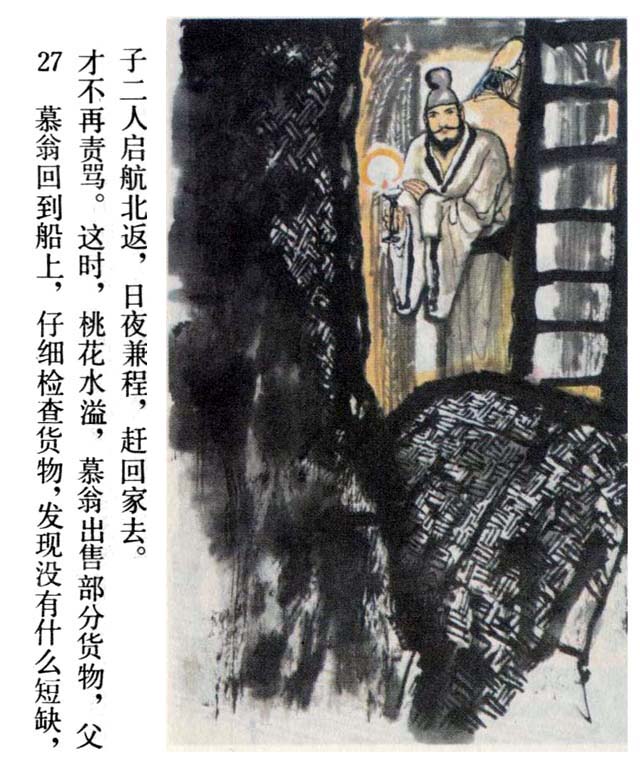 27 慕翁回到船上，仔细检查货物，发现没有什么短缺，
才不再责骂。这时，桃花水溢，慕翁出售部分货物，父
子二人启航北返，日夜兼程，赶回家去。